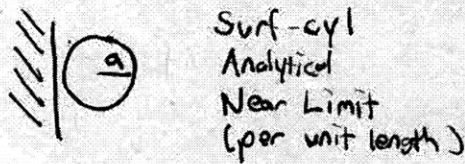 a
Surf-cyl
Analytical
Near Limit
(per unit length)